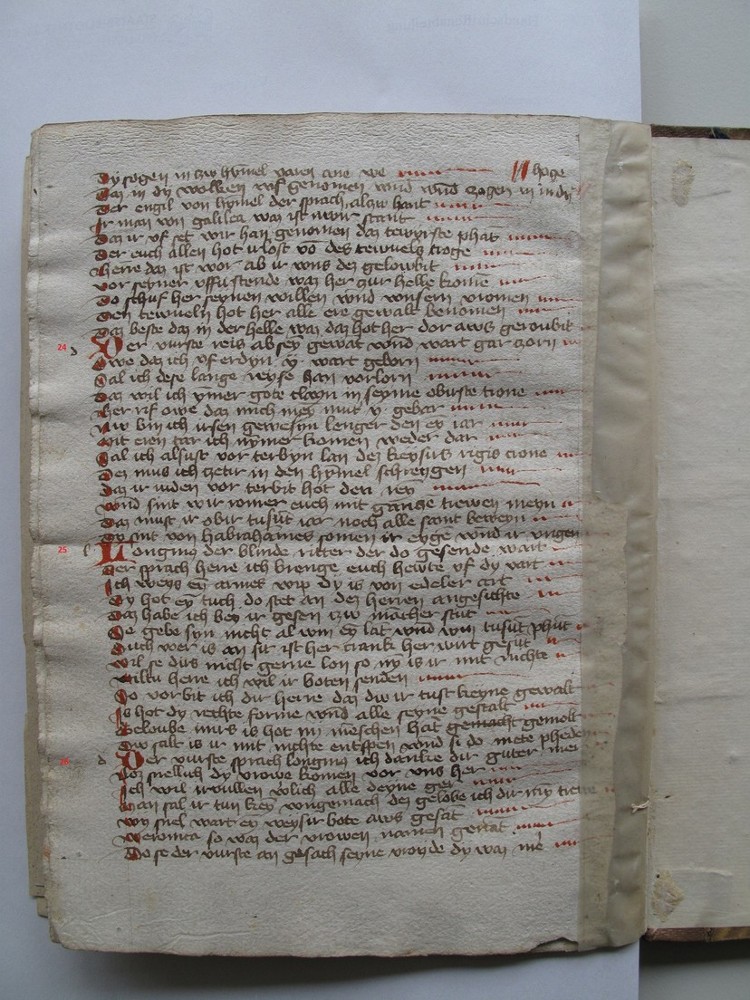 Dy sogen in czw hymel varen ane we hoge
Daz in dy wolken vf genomen wnd wnd czogen in in dy
Der engil von hymel der sprach alczw hant
Ir man von galilea waz ist uwir stant
Daz ir vf set wir han genomen daz tewirste phat
Der euch allen hot irlost vo des tewuels croge
Herre daz ist wor ab ir vns dez gelowbit
vor seyner vffirstende waz her czur helle kome
Do schuf her seynen willen wnd vnsern vromen
Den tewueln hot her alle ere gewalt benomen
Daz beste daz in der helle waz daz hot her dor aws geroubit
24 Der vurste reis abe seyn gewat wnd wart gar czorn
Owe daz ich vf erdyn y wart geborn
Sal ich dese lange reyse han vorlorn
Daz wil ich ymer gote clagin in seyme obirste trone
Her rif owe daz mich mey mut y gebar
Nw bin ich ußen gewesyn lenger den ey iar
Mit eren tar ich nymer komen weder dar
Sal ich alsust vor terbyn lan dez keysirs rigis crone
Dez mus ich zetir in den hymel schreygen
Daz ir iuden vor terbit hot den
wnd sint wir romer euch mit gancze trewen meyn
Daz must ir obir tusut iar noch alle samt beweyn
Dy sint von habrahames somen ir eyge wnd ir
25 Longinus der blinde ritter der do gesende wart
Der sprach herre ich brenge euch hewte vf dy vart
Ich weys ey armes wip dy is von edeler art
Dy hot ey tuch do stet an dez herren angesichte
Daz habe ich bey ir gesen czw mancher stut
Se gebe syn nicht al wm ey lat wnd wm tusut phut
Euch wer is an sir ist her crank her wirt gesut
wil se dus nicht gerne lon so ny is ir mit nichte
wiltu herre ich wil ir boten senden
So vorbit ich dir herre daz dw ir tust keyne gewalt
Is hot dy rechte forme wnd alle seyne gestalt
Geloube mirs is hot ny meschen hat gemacht gemolt
Dw salt is ir mit nichte entpfen wnd si do mete
26 Der vurste sprach longinus ich danke dir guter mer
Loz snellich dy vrowe komen vor vns her
Ich wil irvullen wlich alle deyne ger
Man sal ir tun key vngemach dez gelobe ich dir my trewe
wy snel wart ey weysir bote aws gesat
veronica so waz der vrowen namen genat
Do se der vurste an gesach seyne vroyde dy waz